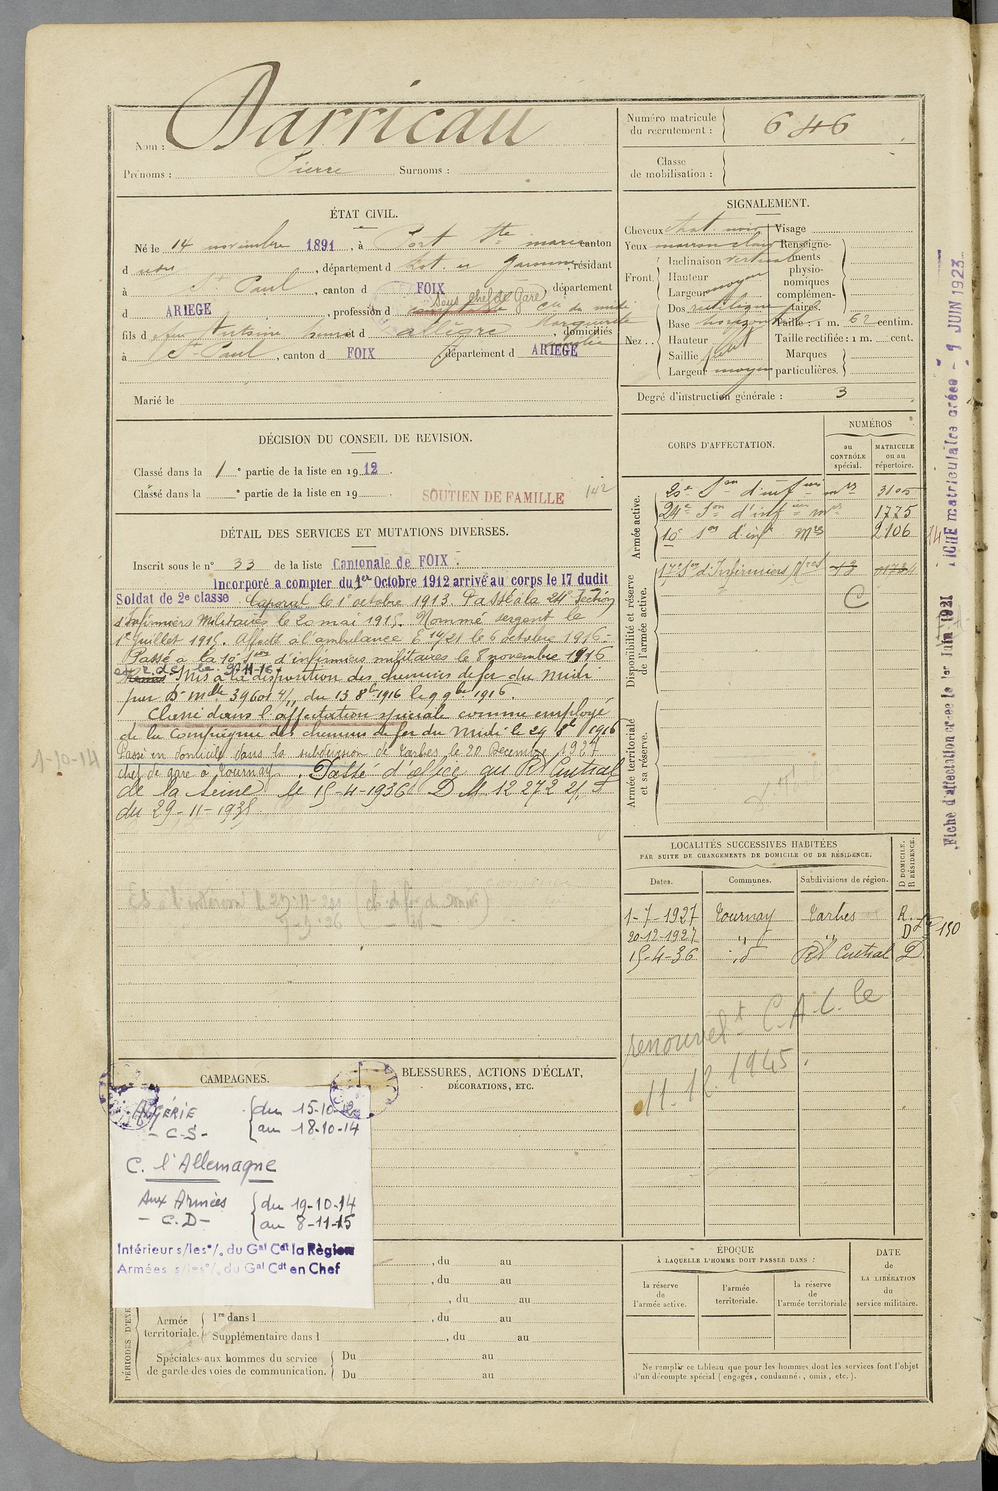 Nom : Darricau
Prénoms : Pierre Surnoms :
Numéro matricule du recrutement : 646
Classe de mobilisation :
ÉTAT CIVIL.
Né le 14 novembre 1891, à Port Ste marie canton
d , département d , résidant
à St Paul , canton d FOIX , département
d ARIEGE , profession d Sous chef de Gare Cie du midi
fils d feu Antoine et d allègre Marguerite , domiciliés
à St Paul , canton d FOIX , département d ARIEGE
Marié le
SIGNALEMENT.
Cheveux chat. noir
Yeux marron clair
Front : Inclinaison verticale
Hauteur
Largeur moyen
Nez : Dos rectiligne
Base horizontale
Hauteur
Saillie petit
Largeur moyen
Visage
Renseignements physionomiques complémentaires.
Taille : 1 m. 62 centim.
Taille rectifiée : 1 m. cent.
Marques particulières.
Degré d'instruction générale : 3
DÉCISION DU CONSEIL DE REVISION.
Classé dans la 1e partie de la liste en 1912.
Classé dans la e partie de la liste en 19
SOUTIEN DE FAMILLE 142
DÉTAIL DES SERVICES ET MUTATIONS DIVERSES.
Inscrit sous le n° 33 de la liste Cantonale de FOIX.
Incorporé a compter du 1er Octobre 1912 arrivé au corps le 17 dudit
Soldat de 2e classe Caporal le 1er octobre 1913. Passé à la 24e Section
d'Infirmiers Militaires le 20 mai 1915. Nommé sergent le
1er Juillet 1915. Affecté à l'ambulance 6/21 le 6 octobre 1916.
Passé à la 16e Son d'infirmiers militaires le 8 novembre 1916
le 9-11-16
Mis à la disposition des chemins de fer du Midi
par D. Mlle 39601 4/11 du 13 8bre 1916 le 9 9bre 1916.
Classé dans l'affectation spéciale comme employé
de la Compagnie des chemins de fer du Midi le 29 8bre 1916
Passé en domicile dans la subdivision de Tarbes le 20 Décembre 1927
chef de gare à Tournay. Passé d'office au Rt Central
de la Seine le 15-4-1936 D M 12 272 2/1 D
du 29-11-1935
1-10-14
CORPS D'AFFECTATION.
NUMÉROS
au CONTRÔLE spécial.
MATRICULE ou au répertoire.
Armée active.
20e Son d'infirmiers mres 3105
24e Son d'infirmiers mres 1775
16e Son d'infrs Mres 2106
Disponibilité et réserve de l'armée active.
17e Son d'Infirmiers Mres
C
Armée territoriale et sa réserve.
LOCALITÉS SUCCESSIVES HABITÉES
PAR SUITE DE CHANGEMENTS DE DOMICILE OU DE RÉSIDENCE.
Dates. Communes. Subdivisions de région. D DOMICILE. R RÉSIDENCE.
1-7-1927 Tournay Tarbes R.
20-12-1927 " " D
15-4-36 id Rt Central D
renouvelt C.A.C. le
11.12.1945.
CAMPAGNES.
BLESSURES, ACTIONS D'ÉCLAT,
DÉCORATIONS, ETC.
ALGÉRIE
- C.S -
du 15-10-12
au 18-10-14
C. l'Allemagne
Aux Armées
- C.D -
du 19-10-14
au 8-11-15
Intérieur s/les °/. du Gal Cdt la Région
Armées s/les °/. du Gal Cdt en Chef
, du au
, du au
, du au
Armée territoriale.
1re dans l , du au
Supplémentaire dans l , du au
Spéciales aux hommes du service de garde des voies de communication.
Du au
Du au
ÉPOQUE
À LAQUELLE L'HOMME DOIT PASSER DANS :
la réserve de l'armée active.
l'armée territoriale.
la réserve de l'armée territoriale
DATE de LA LIBÉRATION du service militaire.
Ne remplir ce tableau que pour les hommes dont les services font l'objet
d'un décompte spécial (engagés, condamnés, omis, etc.).
FICHE matriculaire créée - 9 JUIN 1923
Fiche d'affectation créée le 1er Juin 1921